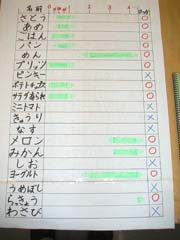 名前 0 1 2 3 4
さとう ○
あめ ○
ごはん ○
パン ○
めん ○
プリッツ ○
ピンキー ×
ポテトチップス ○
サラダあられ ○
ミニトマト ×
きゅうり ×
なす ×
メロン ○
みかん ○
しお ×
ヨーグルト ○
うめぼし ×
らっきょう ○
わさび ×